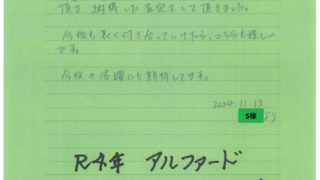 頂き、納得した査定をして頂きました。
今後も長く付き合っていけたら、こちらも嬉しい
です。
今後の活躍にも期待してます。
2024.11.13
S様 より
R4年 アルファード